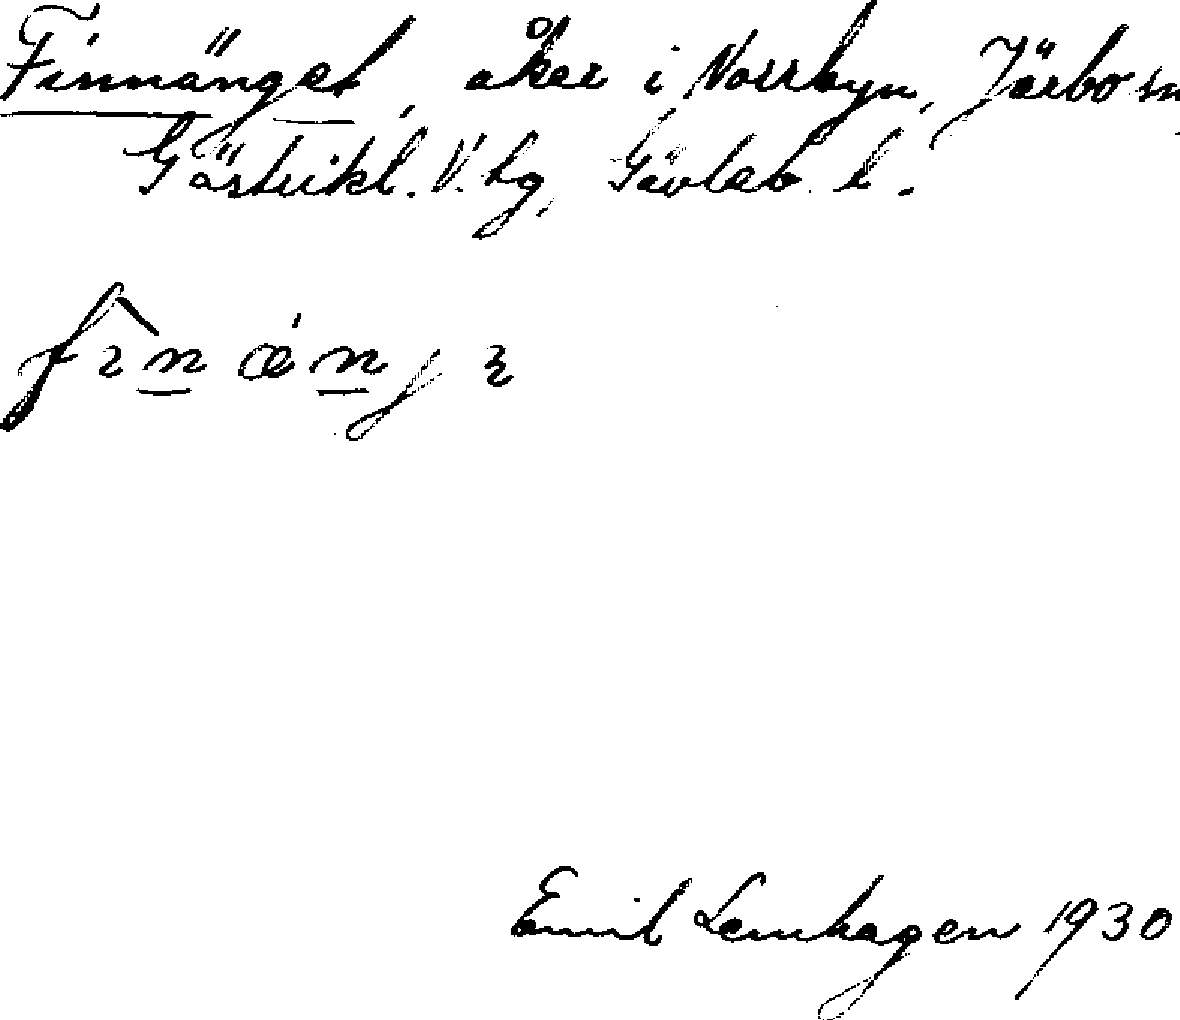 Finnänget, åker i Norrbyn, Järbo sn,
Gästrikl. V. hg, Gävleb. l.
fìn ǽnjɛ
Emil Lenhagen 1930